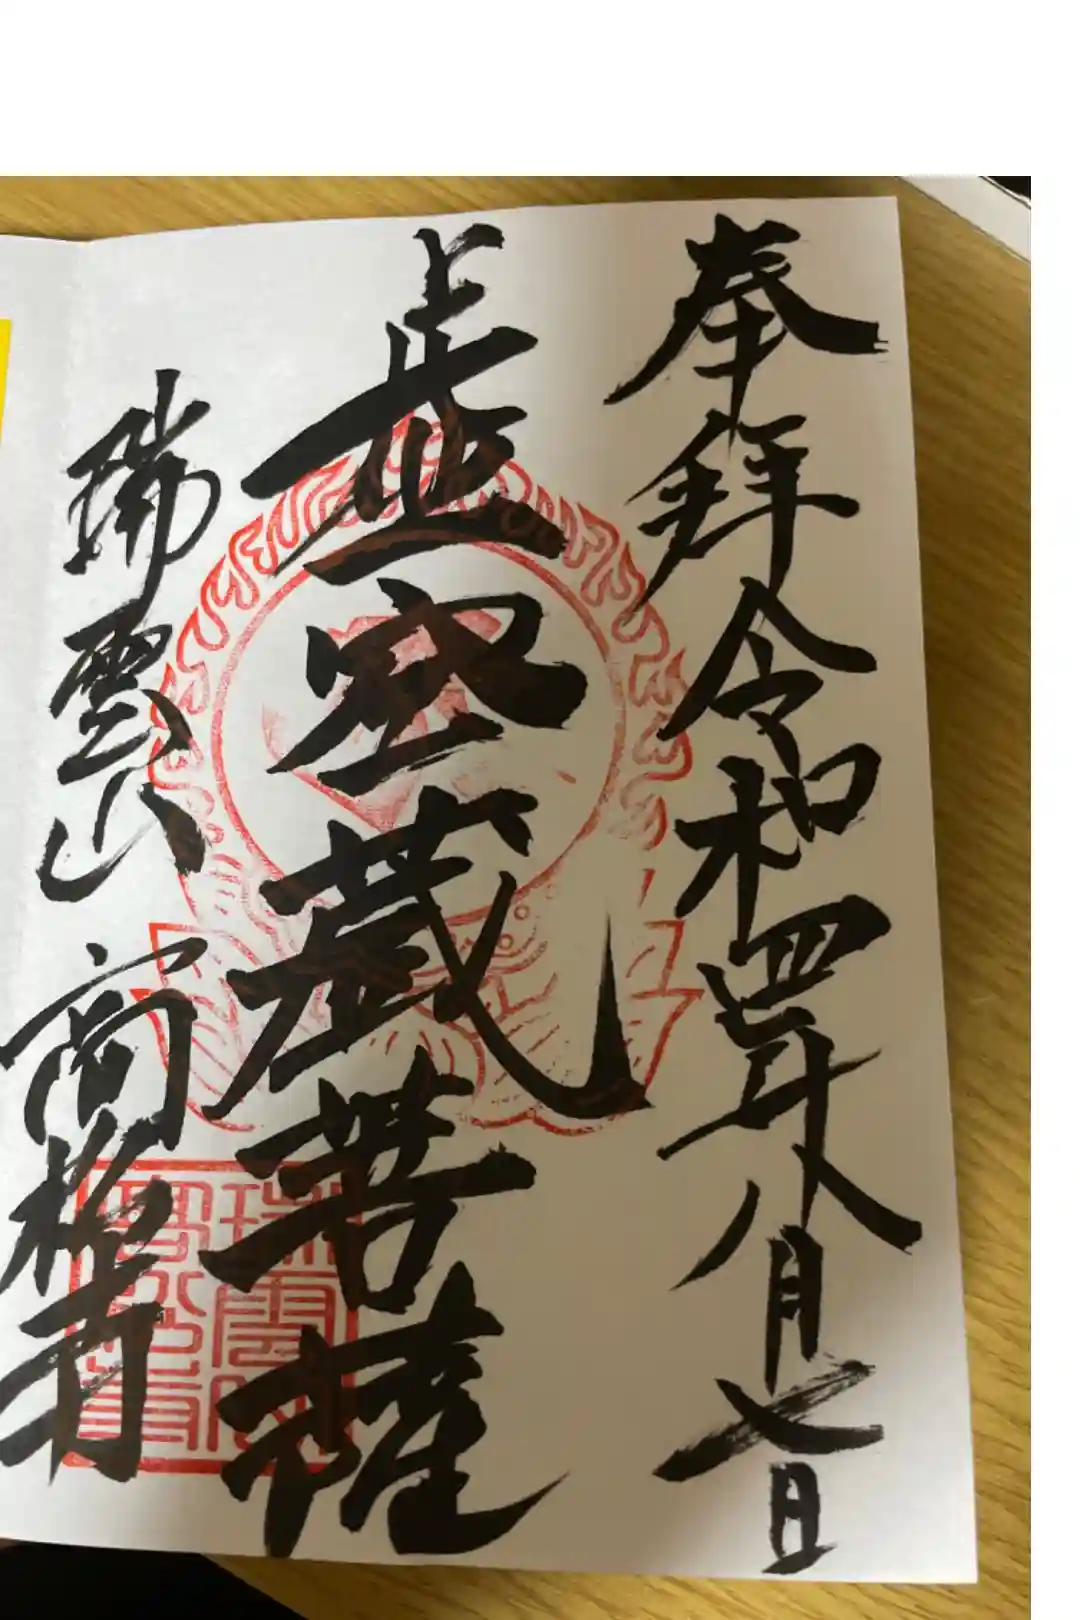 奉拝令和四年八月七日
虚空蔵菩薩
瑞雲山 高 寺